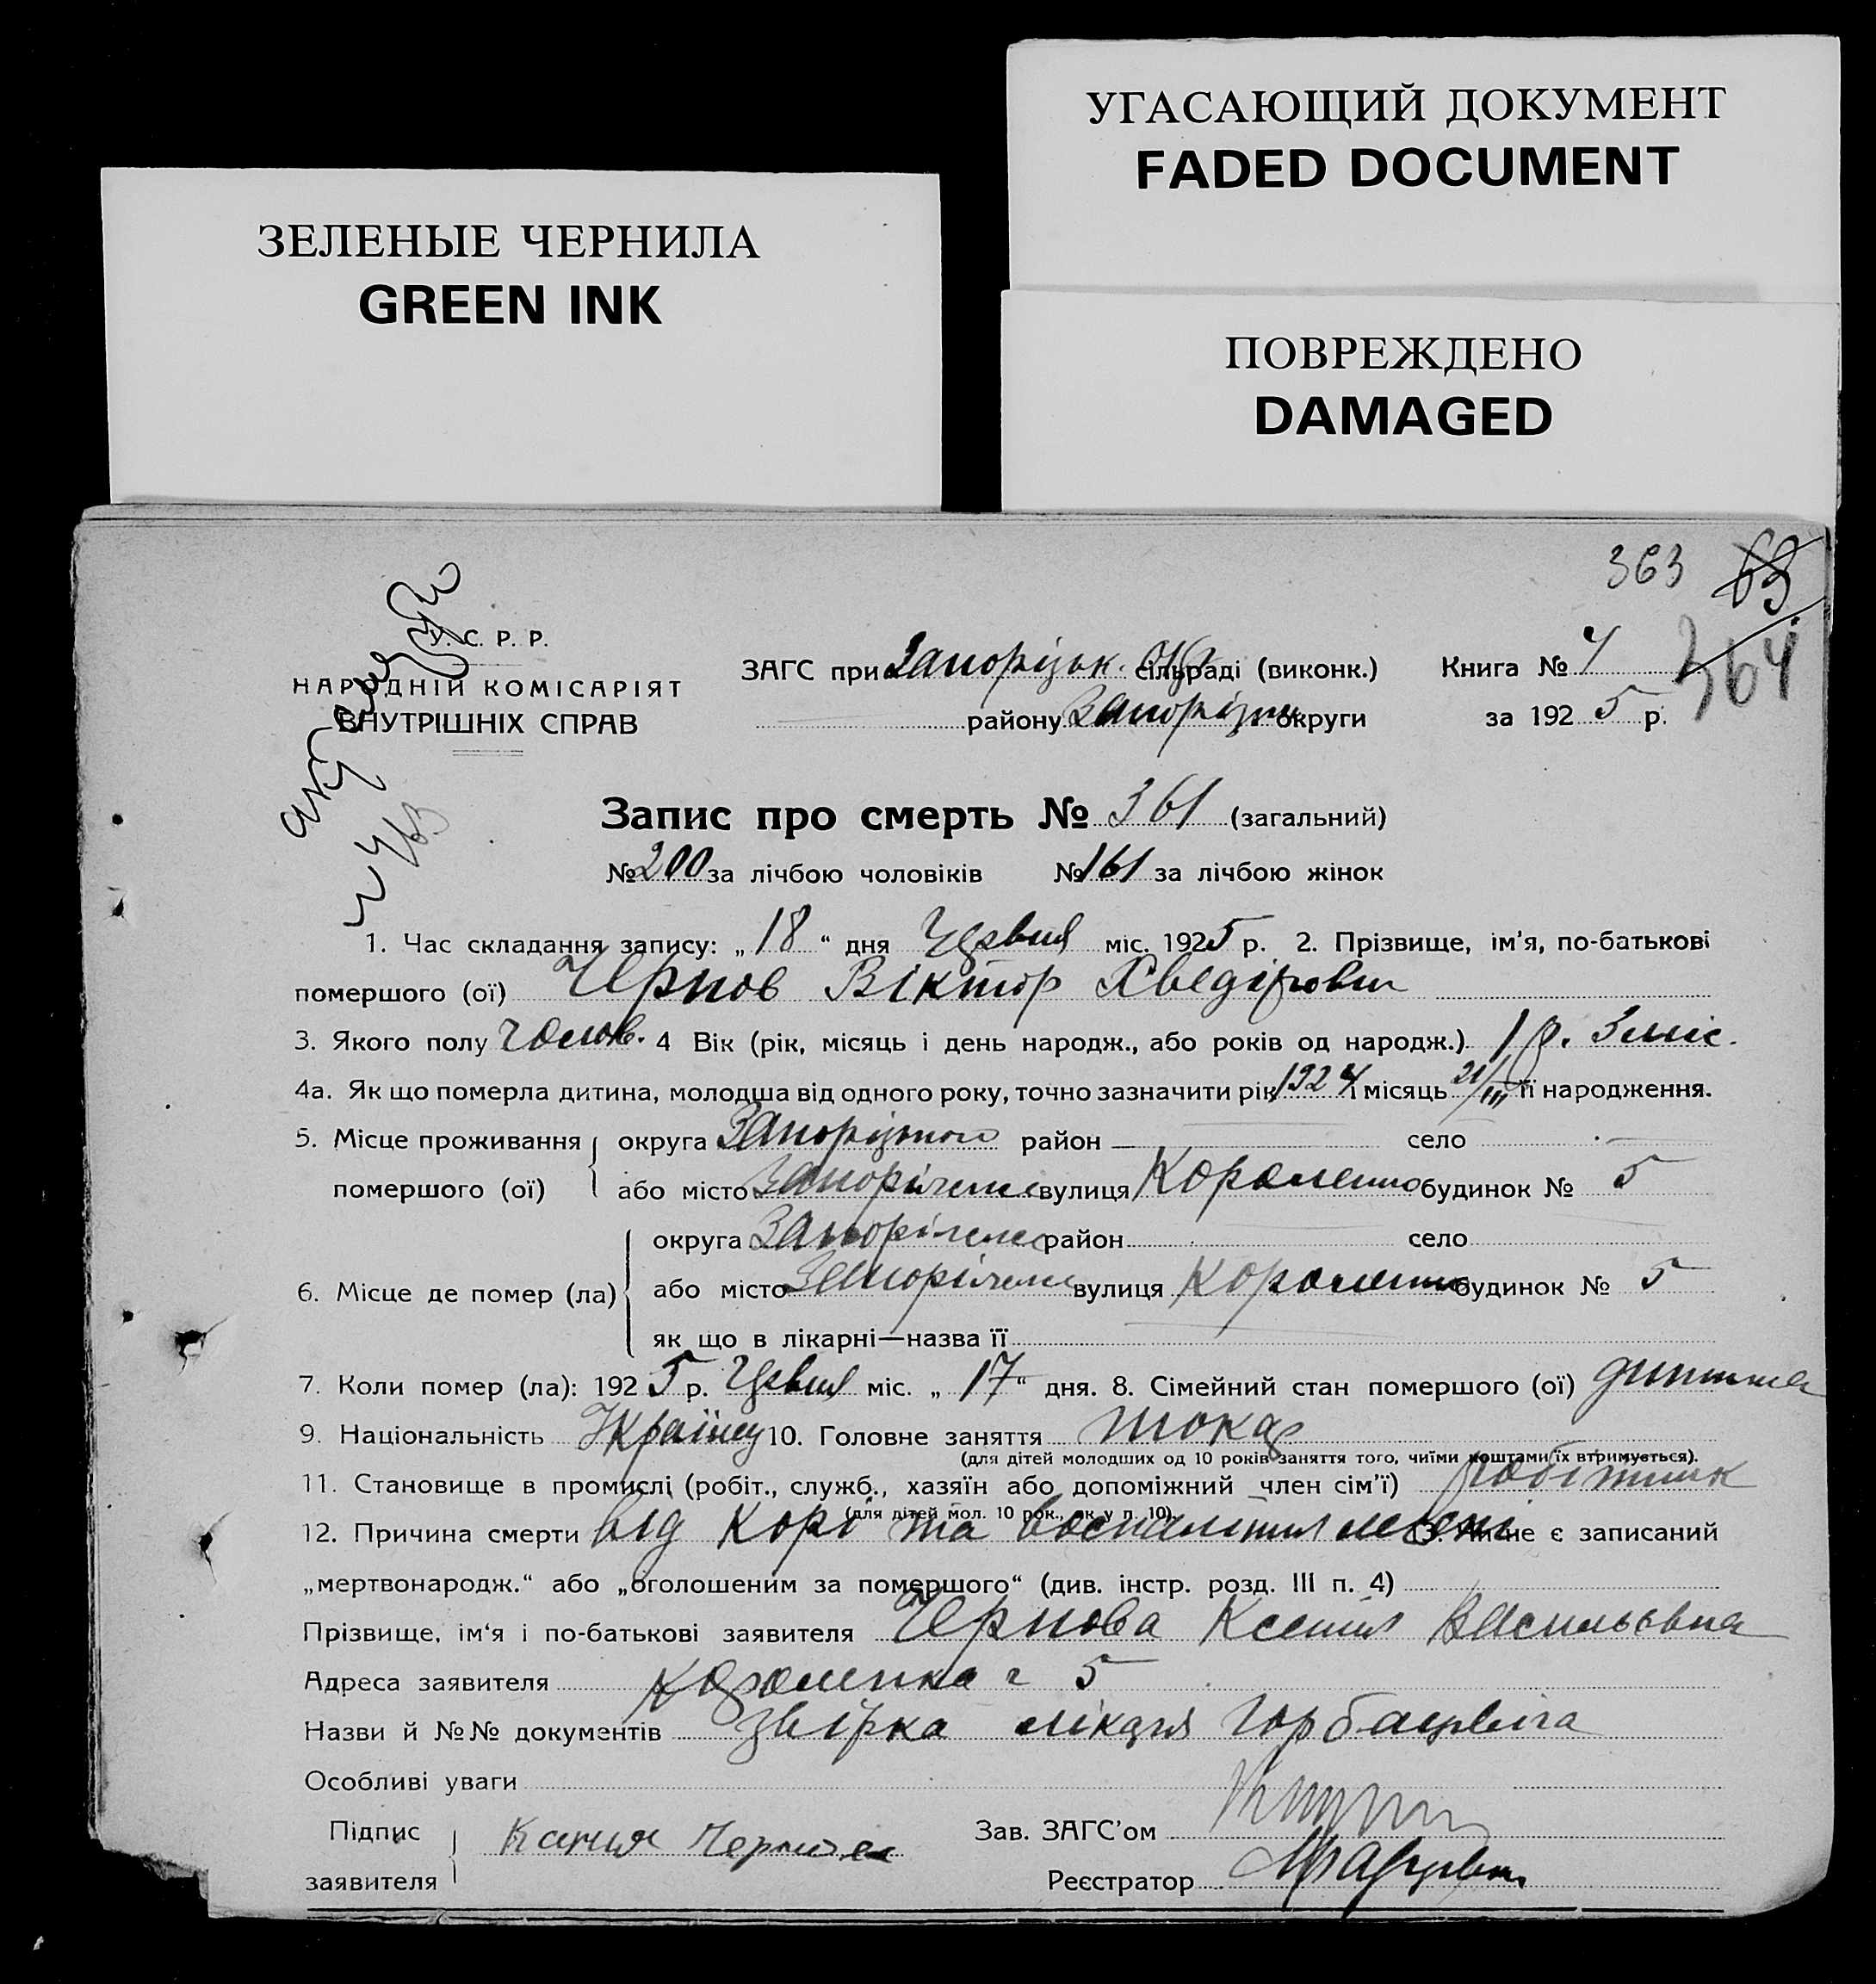 УГАСАЮЩИЙ ДОКУМЕНТ
FADED DOCUMENT
ЗЕЛЕНЫЕ ЧЕРНИЛА
GREEN INK
ПОВРЕЖДЕНО
DAMAGED
363 63
364
У. С. Р. Р.
НАРОДНІЙ КОМІСАРІЯТ
ВНУТРІШНІХ СПРАВ
ЗАГС при Запорізьк. сільраді (виконк.) Книга №
району округи за 1925 р.
Запис про смерть № 361 (загальний)
№ 200 за лічбою чоловіків № 161 за лічбою жінок
1. Час складання запису: „18“ дня Червня міс. 1925 р. 2. Прізвище, ім'я, по-батькові
помершого (ої) Чернов Віктор Хведірович
3. Якого полу чолов. 4 Вік (рік, місяць і день народж., або років од народж.) 1 р. 3 міс.
4а. Як що померла дитина, молодша від одного року, точно зазначити рік 1924 і місяць 21/III її народження.
5. Місце проживання округа район село
помершого (ої) або місто Запоріжже вулиця Короленко будинок № 5
округа Запоріжже район село
6. Місце де помер (ла) або місто Запоріжже вулиця Короленко будинок № 5
як що в лікарні—назва її
7. Коли помер (ла): 1925 р. Червня міс. „17“ дня. 8. Сімейний стан помершого (ої) дитина
9. Національність 10. Головне заняття токар
(для дітей молодших од 10 років заняття того, чиїми коштами їх втримується).
11. Становище в промислі (робіт., служб., хазяїн або допоміжний член сім'ї) робітник
(для дітей мол. 10 рок., як у п. 10).
12. Причина смерти від корі та легені 13. Чи не є записаний
„мертвонародж.“ або „оголошеним за помершого“ (див. інстр. розд. III п. 4)
Прізвище, ім'я і по-батькові заявителя Чернова Ксенія Васильевна
Адреса заявителя Короленка 5
Назви й №№ документів звірка лікаря Горбацевіча
Особливі уваги
Підпис Зав. ЗАГС'ом
заявителя Реєстратор